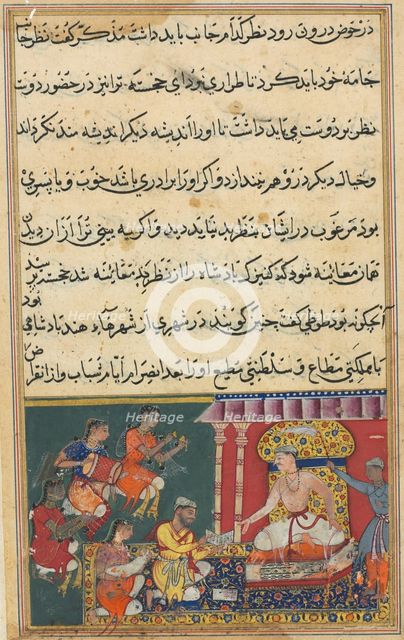 در حوض درون رود نظر کدام جانب باید داشت مذکر گفت نظر جانب
جامه خود باید کرد تا طراری نبرد ای خجسته ترا نیز در حضور دوست
نظر بر دوست می باید داشت تا او را اندیشه دیگر اندیشه مند نکرداند
و خیال دیگر در وهم نیندازد و اکر او را برادری باشد خوب و یا پسری
بود مرغوب در ایشان بنظر بد نباید دید و اکر به بینی ترا از ان دیدن
همان معاینه شود که کنیزک پادشاه را از نظر بد معاینه شد خجسته پرسید
آن چکونه بود طوطی گفت چنین کویند در شهری از شهرهاء هند پادشاهی بود
با مملکتی مطاع و سلطنتی مطیع او را بعد انصرام ایام شباب و انقراض
Heritage
Heritage
Heritage
Heritage
Heritage
Heritage